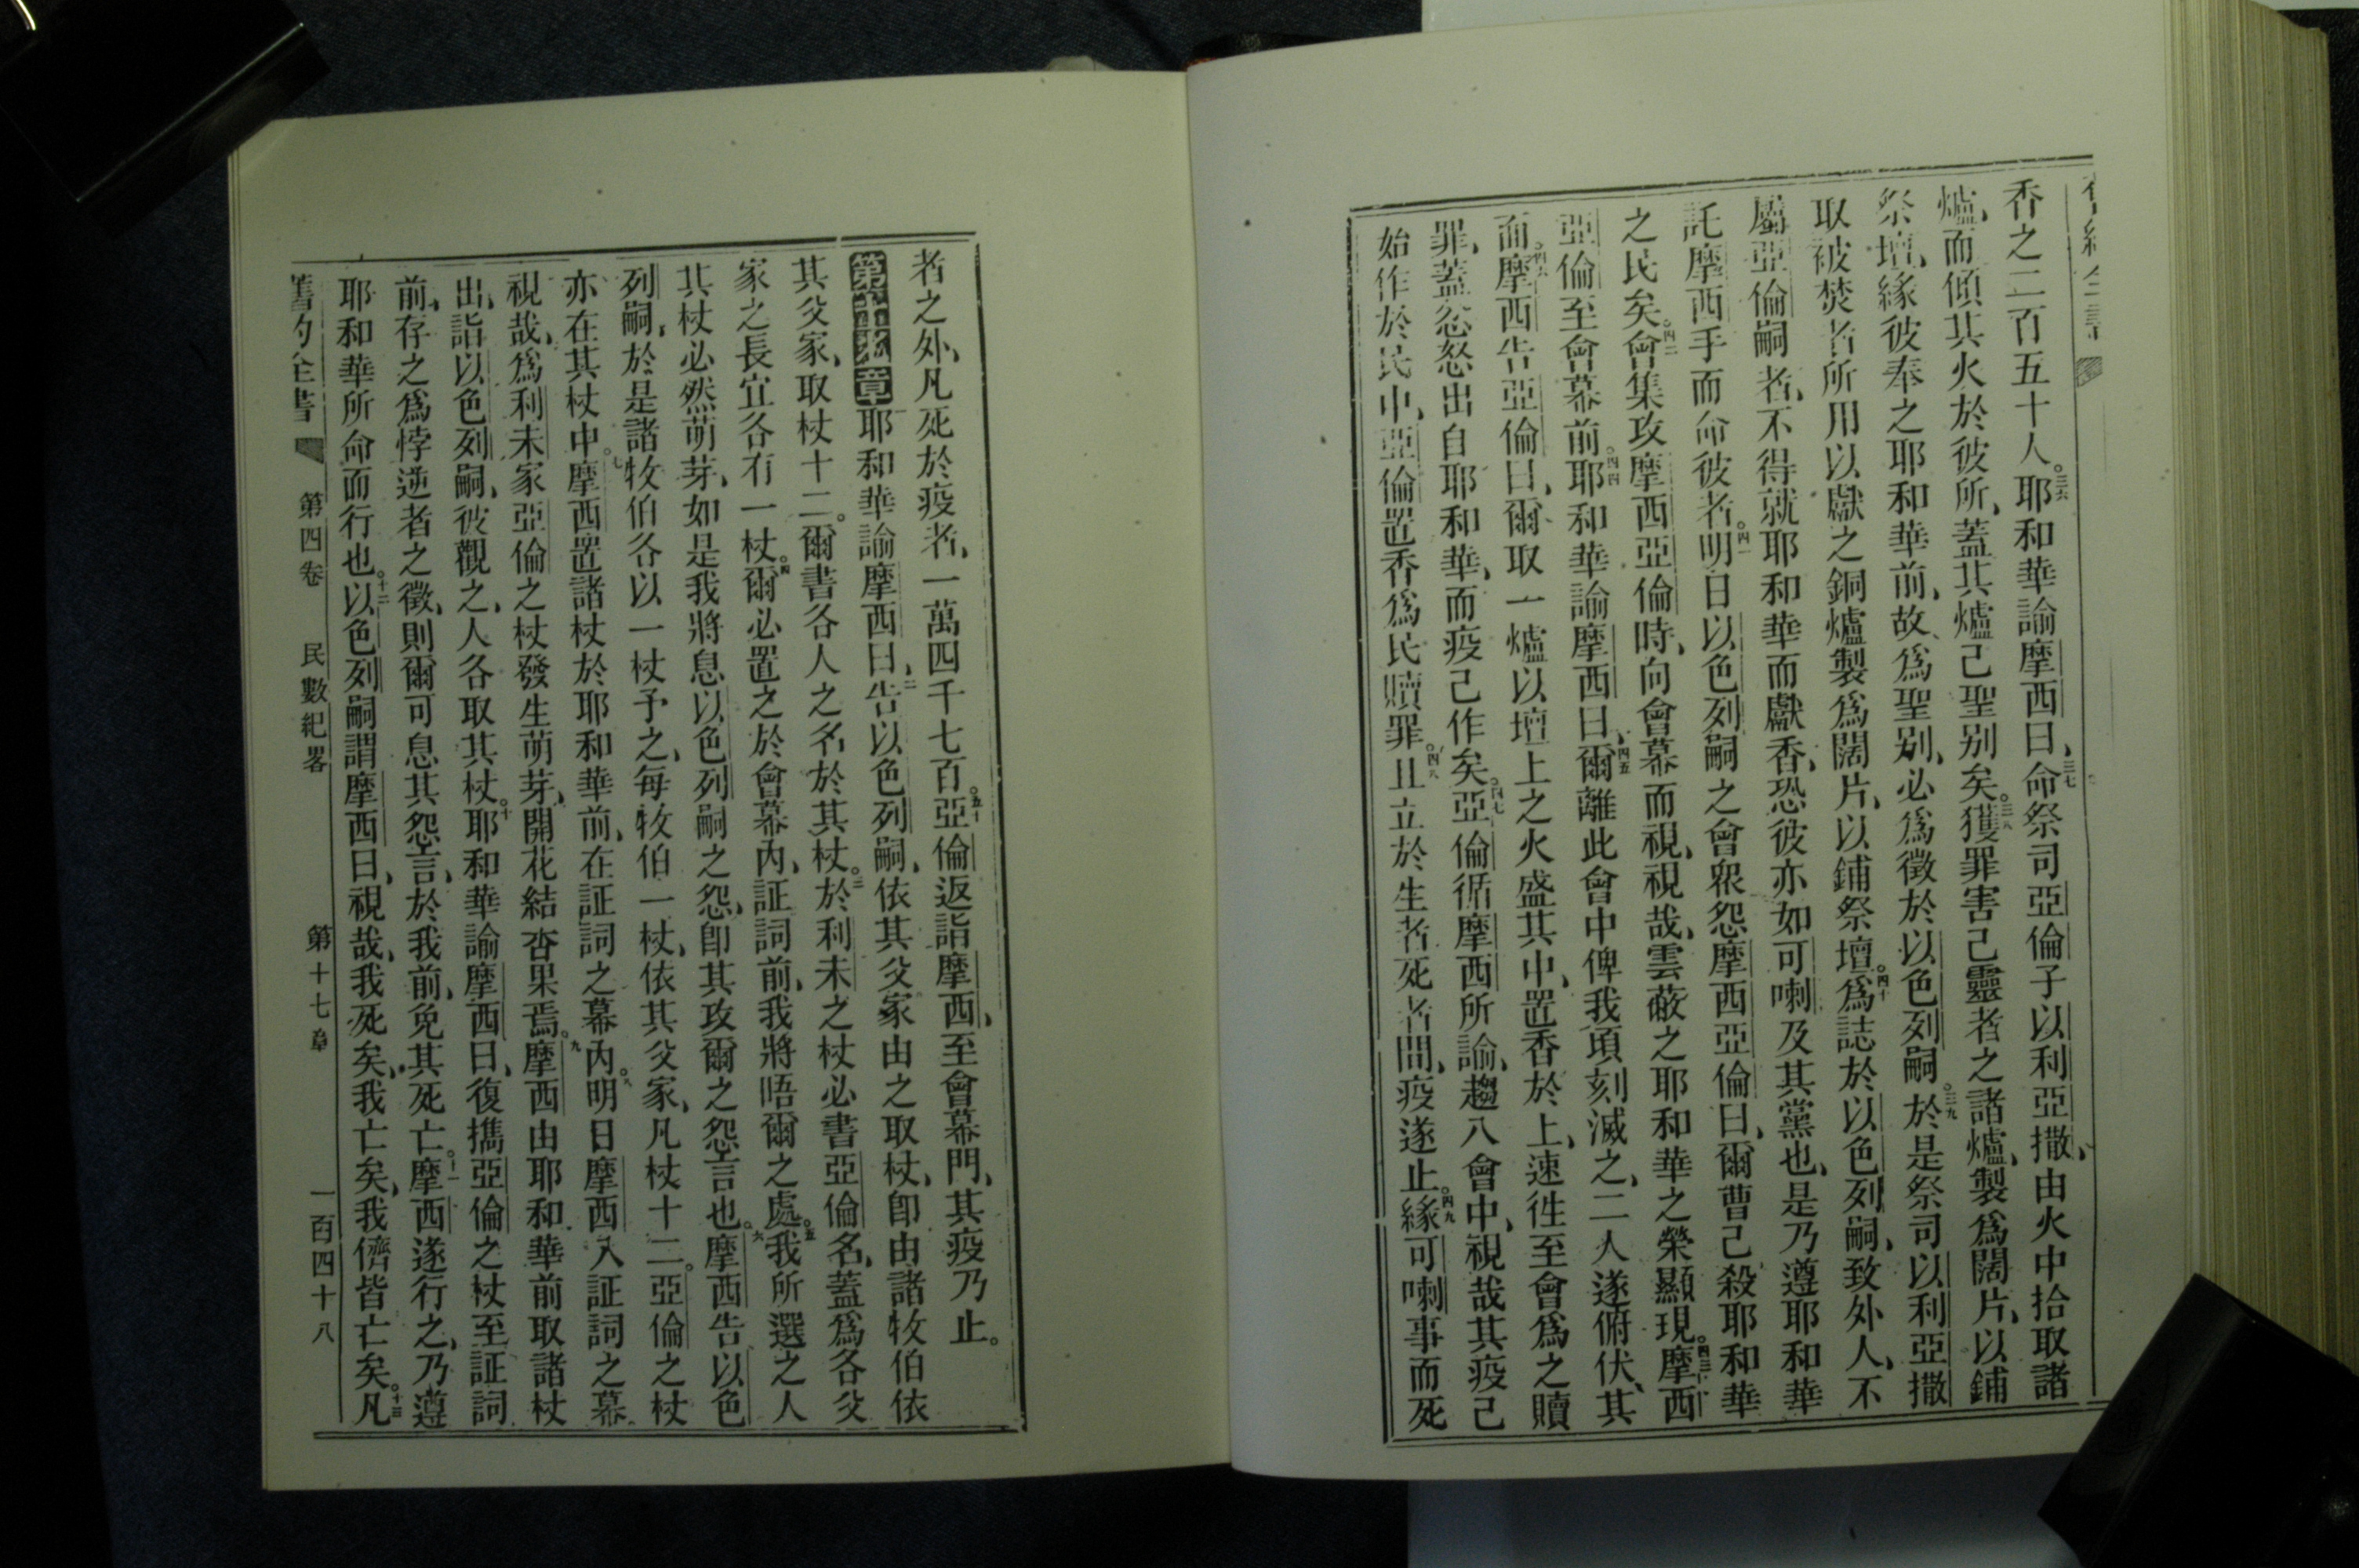 香之二百五十人。三六耶和華諭摩西曰、三七命祭司亞倫子以利亞撒、由火中拾取諸
爐、而傾其火於彼所、蓋其爐己聖别矣。三八獲罪害己靈者之諸爐、製爲闊片、以鋪
祭壇、緣彼奉之耶和華前、故爲聖别、必爲徵於以色列嗣。三九於是祭司以利亞撒
取被焚者所用以獻之銅爐製爲闊片、以鋪祭壇。四十爲誌於以色列嗣、致外人、不
屬亞倫嗣者、不得就耶和華而獻香、恐彼亦如可喇及其黨也、是乃遵耶和華
託摩西手而命彼者。四一明日以色列嗣之會衆怨摩西亞倫曰、爾曹己殺耶和華
之民矣。四二會集攻摩西亞倫時、向會幕而視、視哉、雲蔽之耶和華之榮顯現。四三摩西
亞倫至會幕前。四四耶和華諭摩西曰、四五爾離此會中俾我頃刻滅之、二人遂俯伏、其
面。四六摩西告亞倫曰、爾取一爐以壇上之火盛其中、置香於上、速徃至會爲之贖
罪、蓋忿怒出自耶和華、而疫己作矣。四七亞倫循摩西所諭、趨入會中、視哉其疫己
始作於民中、亞倫置香爲民贖罪。四八且立於生者死者間、疫遂止。四九緣可喇事而死
者之外、凡死於疫者、一萬四千七百。五十亞倫返詣摩西、至會幕門、其疫乃止。
第十七章耶和華諭摩西曰、二告以色列嗣、依其父家由之取杖、卽由諸牧伯依
其父家、取杖十二。爾書各人之名於其杖。三於利未之杖必書亞倫名、蓋爲各父
家之長宜各有一杖。四爾必置之於會幕內、証詞前、我將晤爾之處。五我所選之人
其杖必然萌芽、如是我將息以色列嗣之怨、卽其攻爾之怨言也。六摩西告以色
列嗣、於是諸牧伯各以一杖予之、每牧伯一杖、依其父家、凡杖十二。亞倫之杖
亦在其杖中。七摩西置諸杖於耶和華前、在証詞之幕內。八明日摩西入証詞之幕
視哉、爲利未家亞倫之杖發生萌芽、開花結杏果焉。九摩西由耶和華前取諸杖
出、詣以色列嗣、彼觀之、人各取其杖。十耶和華諭摩西曰、復攜亞倫之杖至証詞
前、存之爲悖逆者之徵、則爾可息其怨言、於我前、免其死亡。十一摩西遂行之、乃遵
耶和華所命而行也。十二以色列嗣謂摩西曰、視哉、我死矣、我亡矣、我儕皆亡矣。十三凡
舊約全書 第四卷 民數紀畧 第十七章 一百四十八